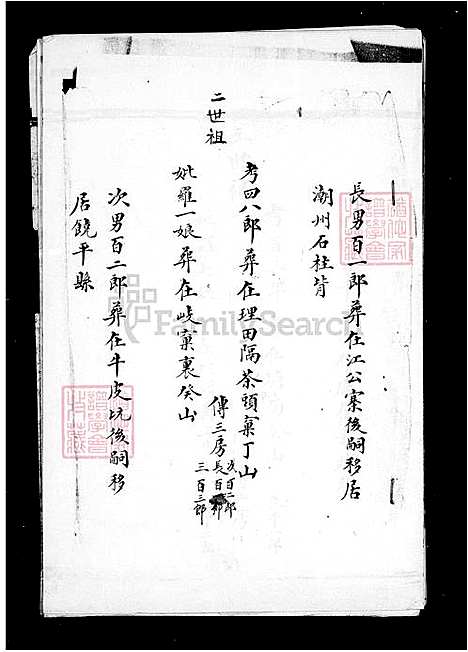 長男百一郎葬在江公寨後嗣移居
潮州石柱背
二世祖
考四八郎葬在理田隔茶頭窠丁山
傳三房
長百一郎
次百二郎
三百三郎
妣羅一娘葬在歧窠裏癸山
次男百二郎葬在牛皮坑後嗣移
居饒平縣
FamilySearch